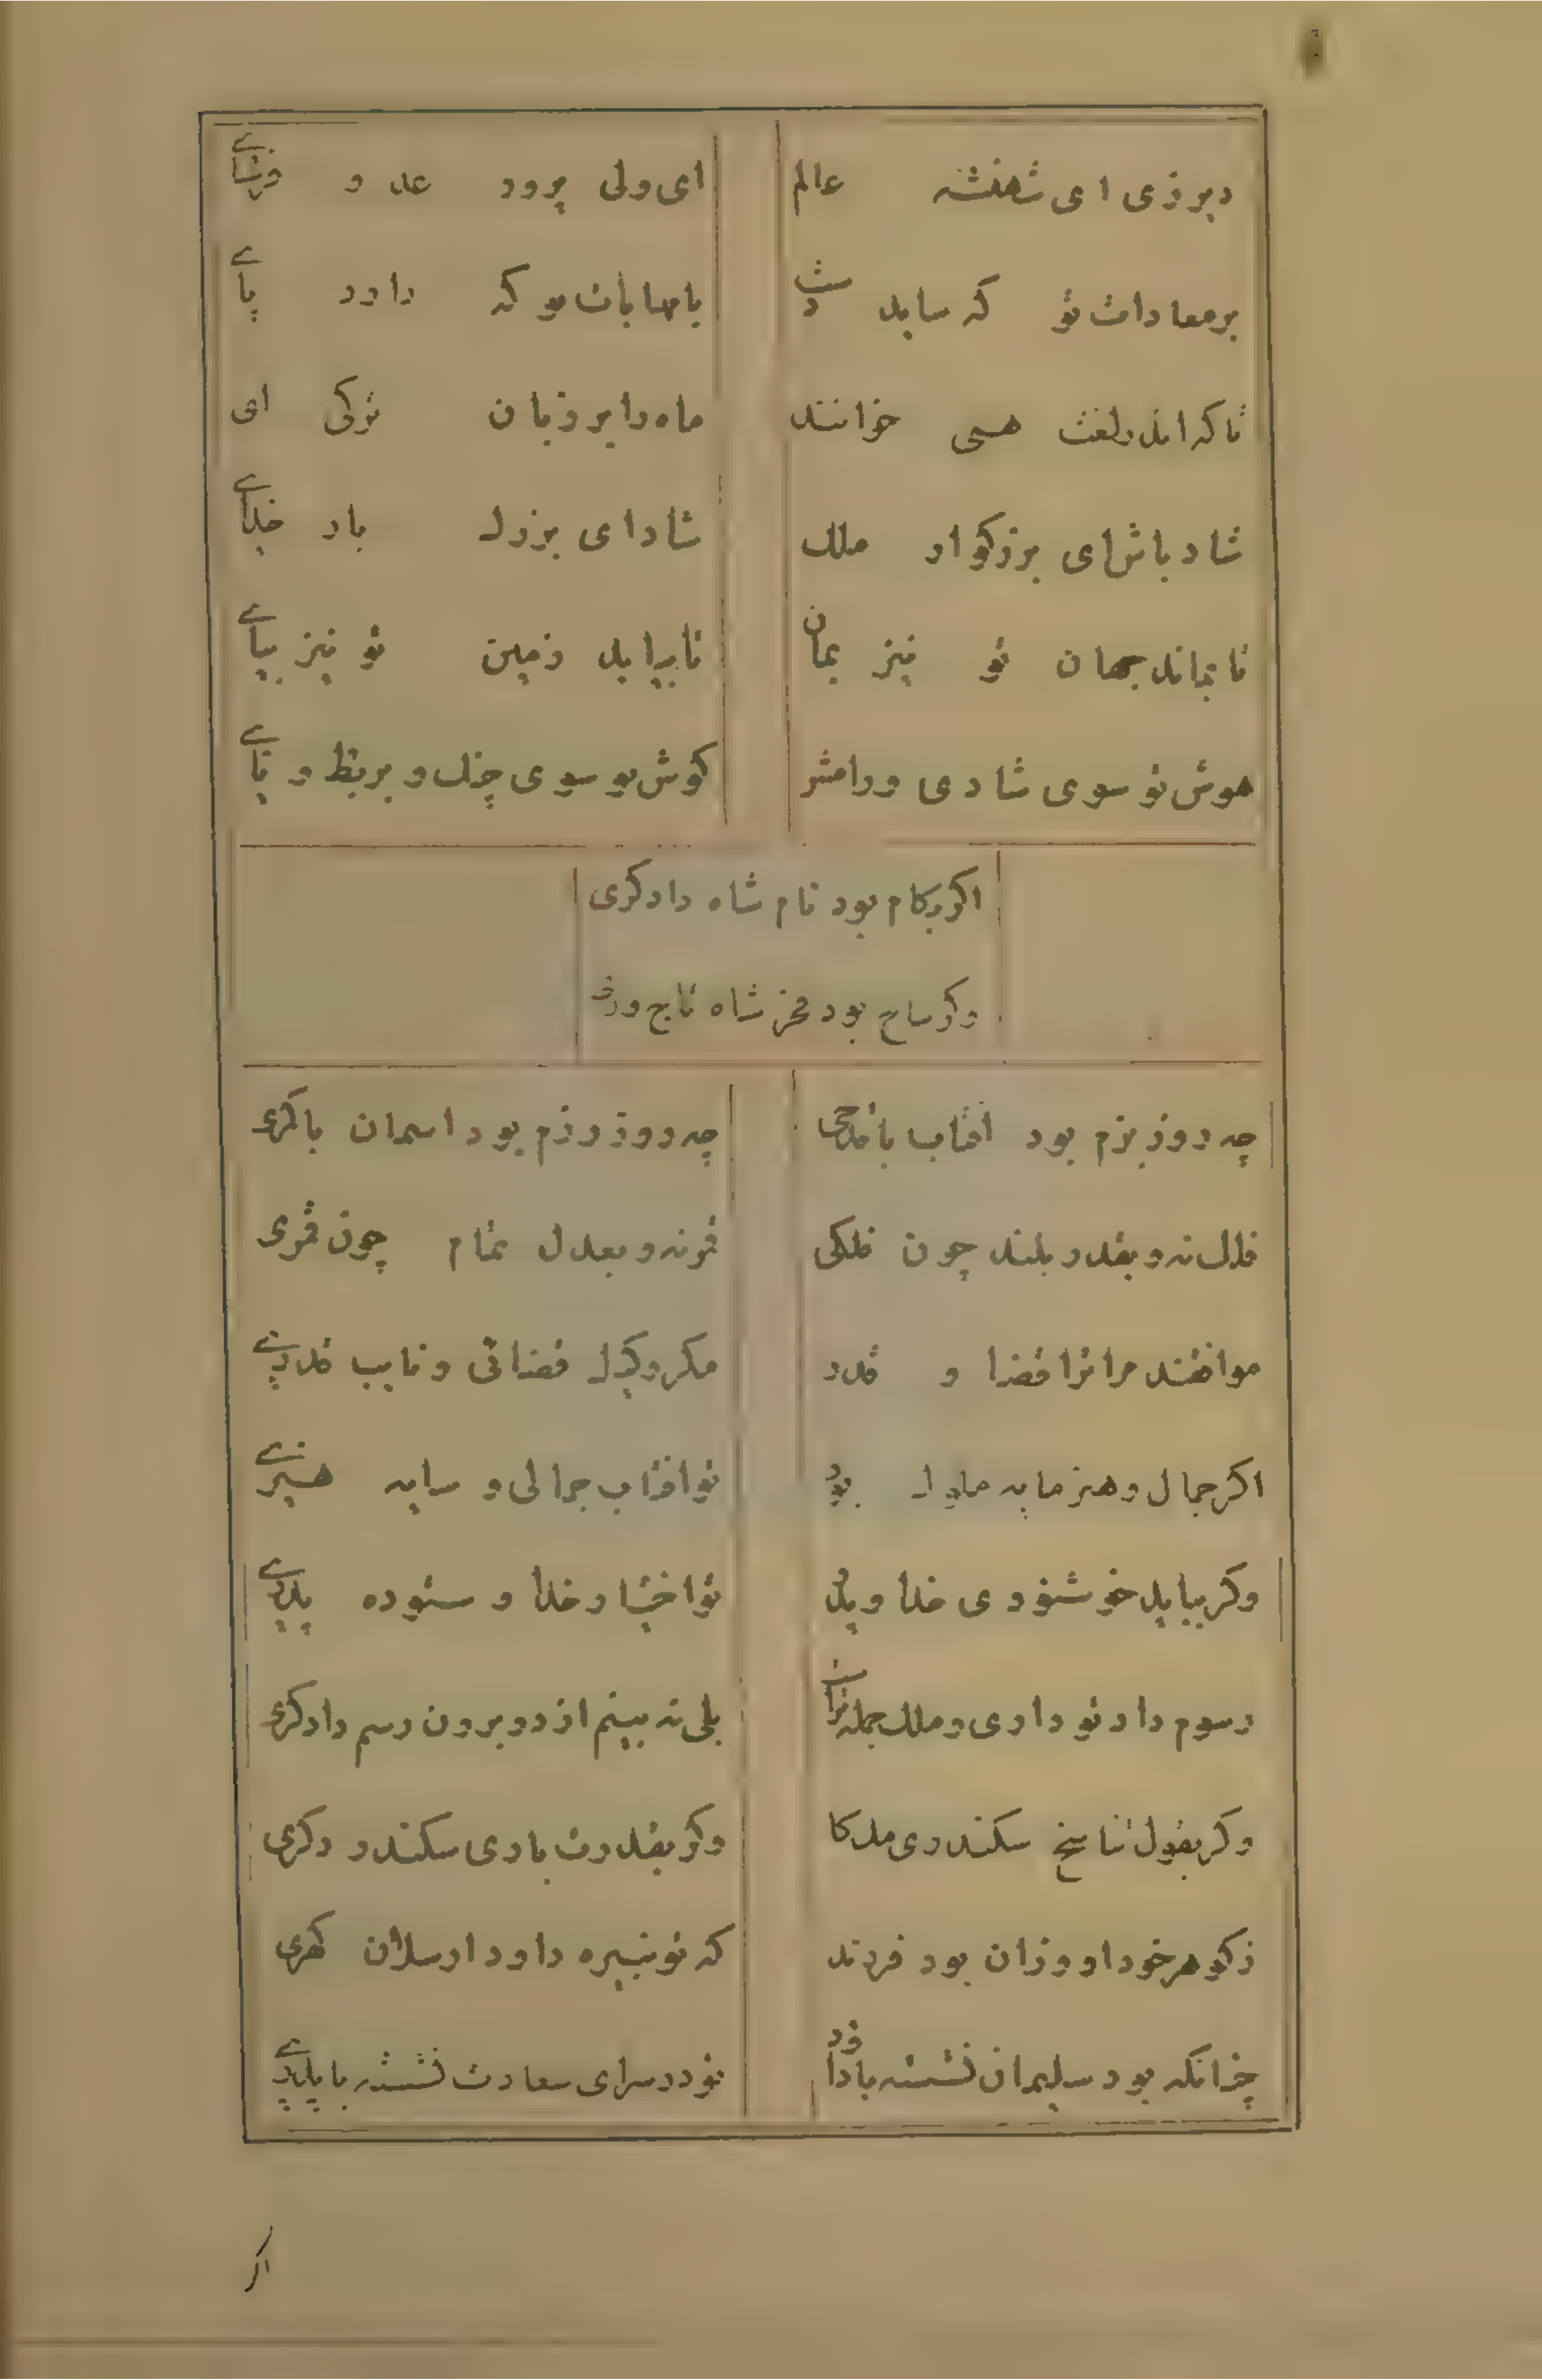 دیر زی ای شهنشه عالم
ای ولی پرور عدو فرسای
بر معادات تو که ساید دست
با مهابات تو که دارد پای
تا که اندر لغت همی خوانند
ماه را بر زبان ترکی ای
شاد باش ای بزرگوار ملک
شاد ای بزرگ بار خدای
تا بماند جهان تو نیز بمان
تا بپاید زمین تو نیز بپای
هوش تو سوی شادی و رامش
گوش تو سوی چنک و بربط و نای
اگر بکام بود نام شاه دادگری
وگر بتاج بود فخر شاه تاجوری
چه روز بزم بود آفتاب با قدحی
چه روز رزم بود اسمان با کمری
فلک نه و بقدر بلند چون فلکی
قمر نه و بعدل تمام چون قمری
موافقند مر اترا قضا و قدر
مکر وکیل قضائی و نایب قدری
اگر جمال و هنر مایه ملوک بود
تو افتاب جمالی و سایه هنری
وگر بباید خوشنودی خدا و پدر
تو اختیار خدا و ستوده پدری
رسوم داد تو داری و ملک جمله تراست
بلی نه بینم از دو برون رسم دادگری
وگر بقول تناسخ سکندری ملکا
وگر بقدرت باری سکندر دگری
ز گوهر خود اووزان بود فرزند
که تو نبیره داود ارسلان گهری
چنانکه بود سلیمان نشسته با داود
تو در سرای سعادت نشسته با پدری
اگر